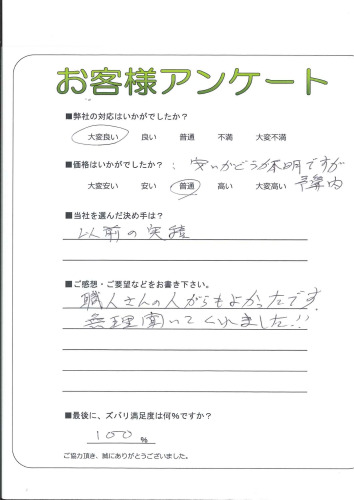 お客様アンケート
■弊社の対応はいかがでしたか?
大変良い 良い 普通 不満 大変不満
■価格はいかがでしたか? : 安いかどうか不明ですが
大変安い 安い 普通 高い 大変高い 予算内
■当社を選んだ決め手は?
以前の実績
■ご感想・ご要望などをお書き下さい。
職人さんの人がらもよかったです。
無理聞いてくれました!!
■最後に、ズバリ満足度は何%ですか?
100 %
ご協力頂き、誠にありがとうございました。